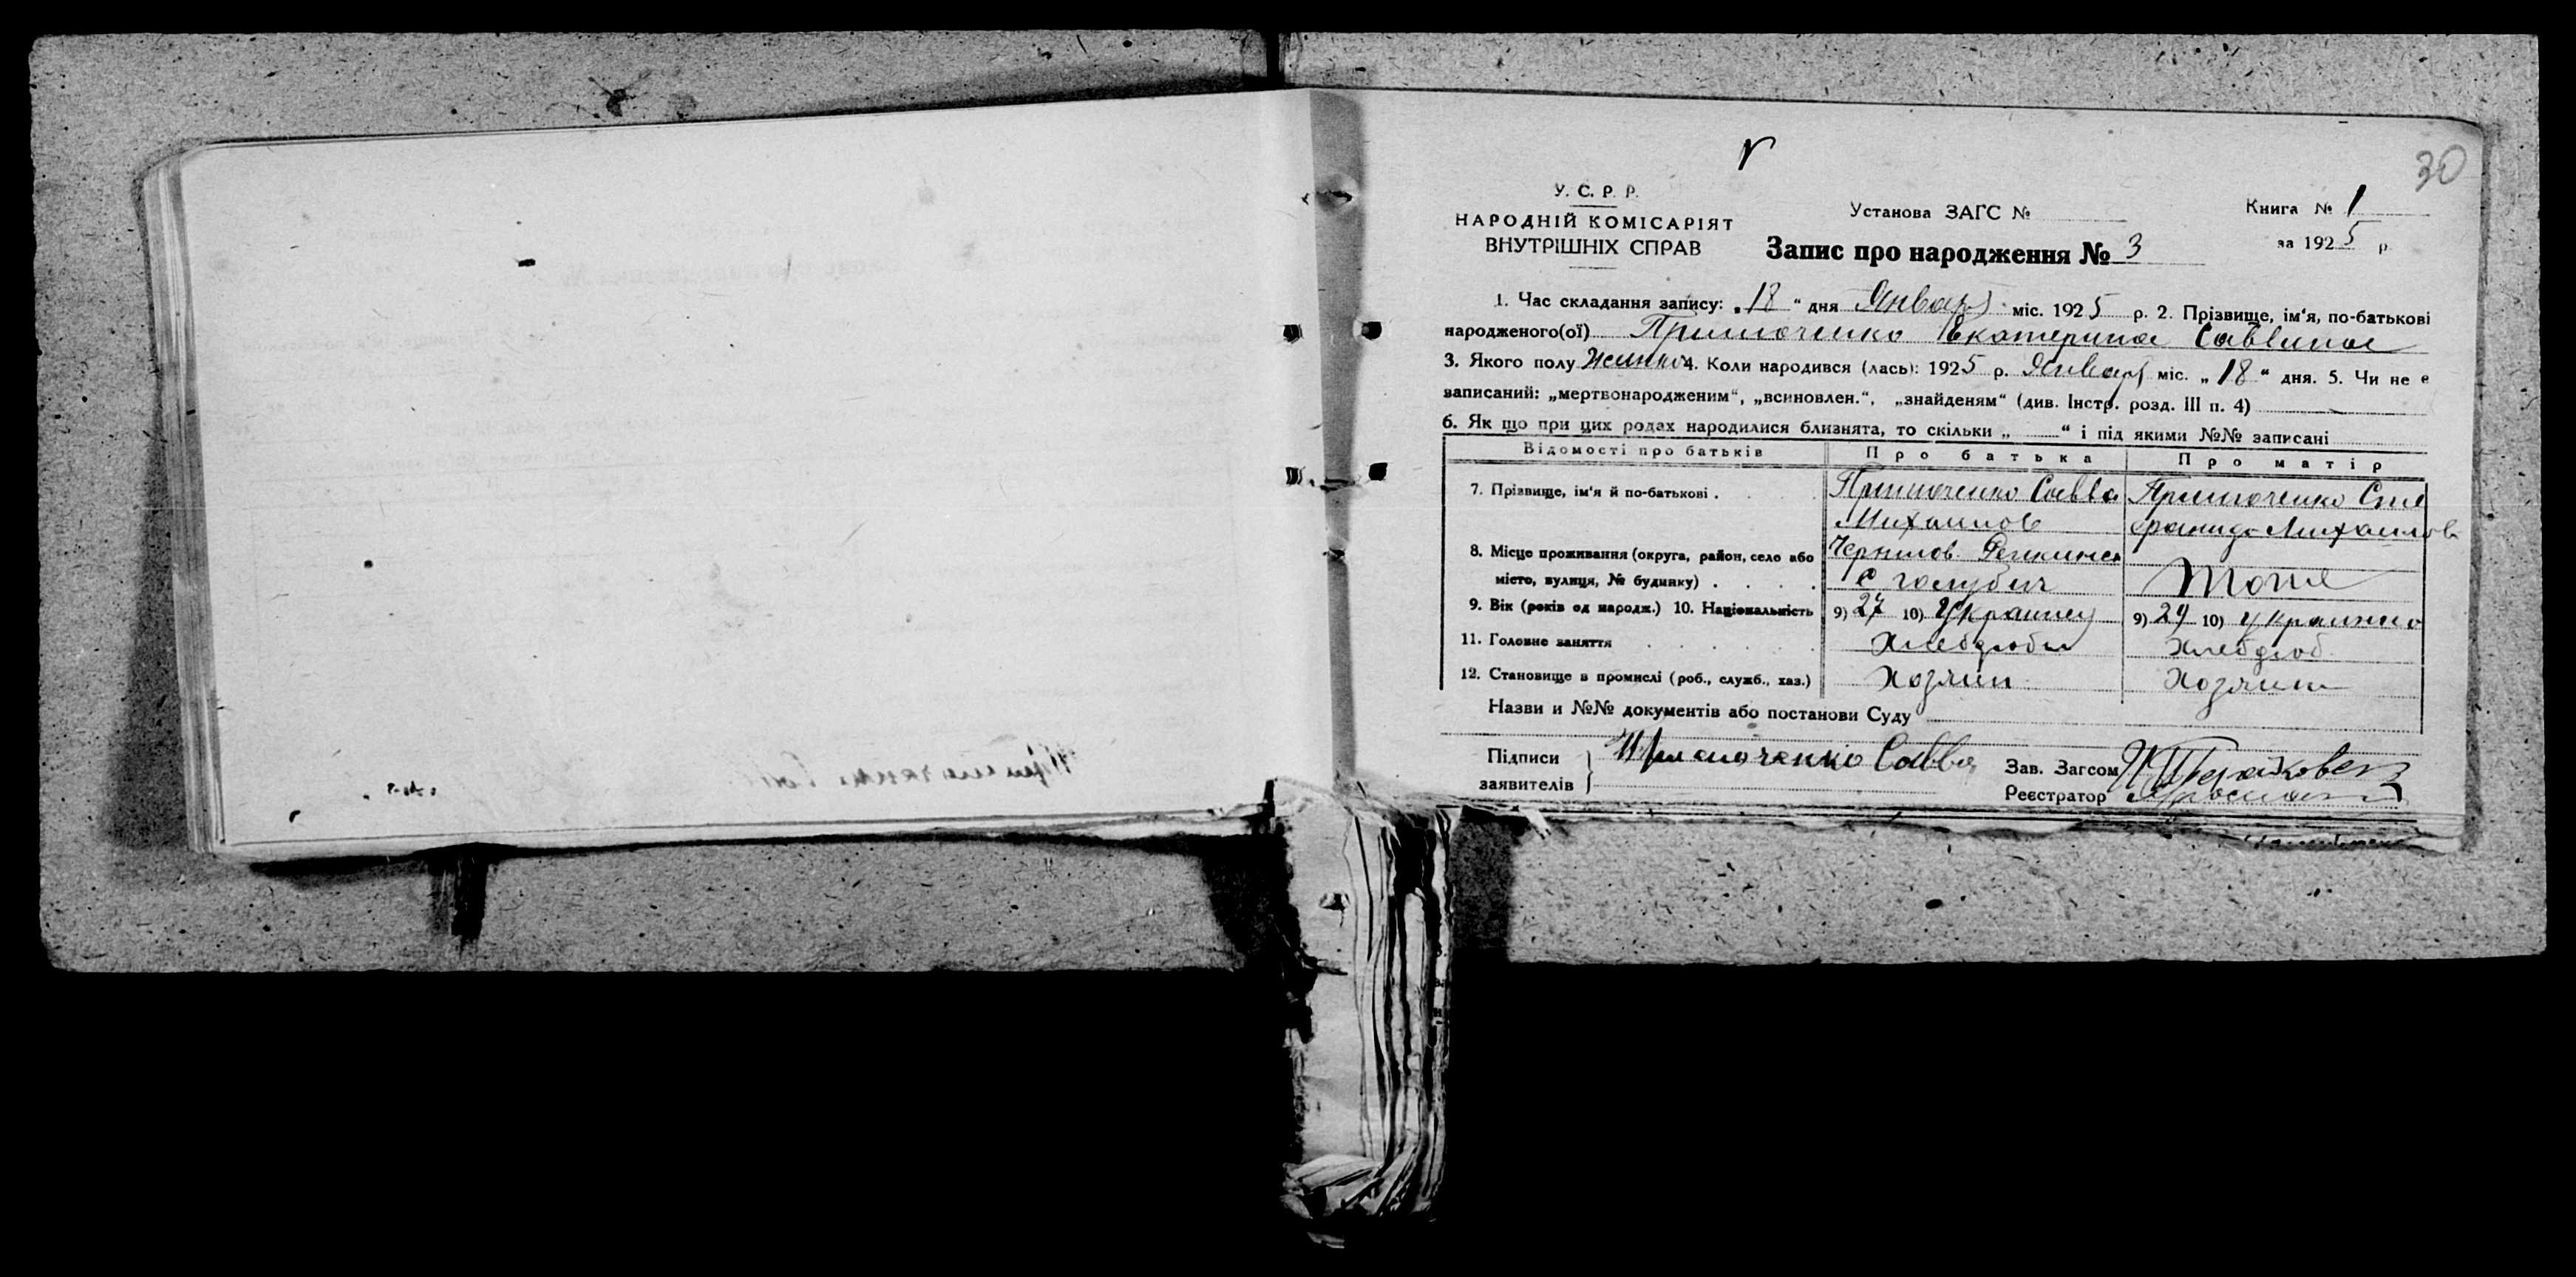 30
У. С. Р. Р.
НАРОДНІЙ КОМІСАРІЯТ
ВНУТРІШНІХ СПРАВ
Установа ЗАГС №
Книга № 1
за 1925 р.
Запис про народження № 3
1. Час складання запису: „18“ дня Января міс. 1925 р. 2. Прізвище, ім'я, по-батькові
народженого(ої) Примоченко Екатерина Саввина
3. Якого полу 4. Коли народився (лась): 1925 р. Января міс. „18“ дня. 5. Чи не є
записаний: „мертвонародженим“, „всиновлен.“, „знайденям“ (див. Інстр. розд. III п. 4)
6. Як що при цих родах народилися близнята, то скільки „ “ і під якими №№ записані
Відомості про батьків Про батька Про матір
7. Прізвище, ім'я й по-батькові . Примоченко Савва Примоченко Сте
Михаилов фанида Михаилов
8. Місце проживання (округа, район, село або Чернигов.
місто, вулиця, № будинку) . с Голубич Тоже
9. Вік (років од народж.) 10. Національність 9) 27 10) 9) 24 10)
11. Головне заняття Хлебороб
12. Становище в промислі (роб., служб., хаз.) Хозяин
Назви и №№ документів або постанови Суду
Підписи Примоченко Савва Зав. Загсом
заявителів Реєстратор